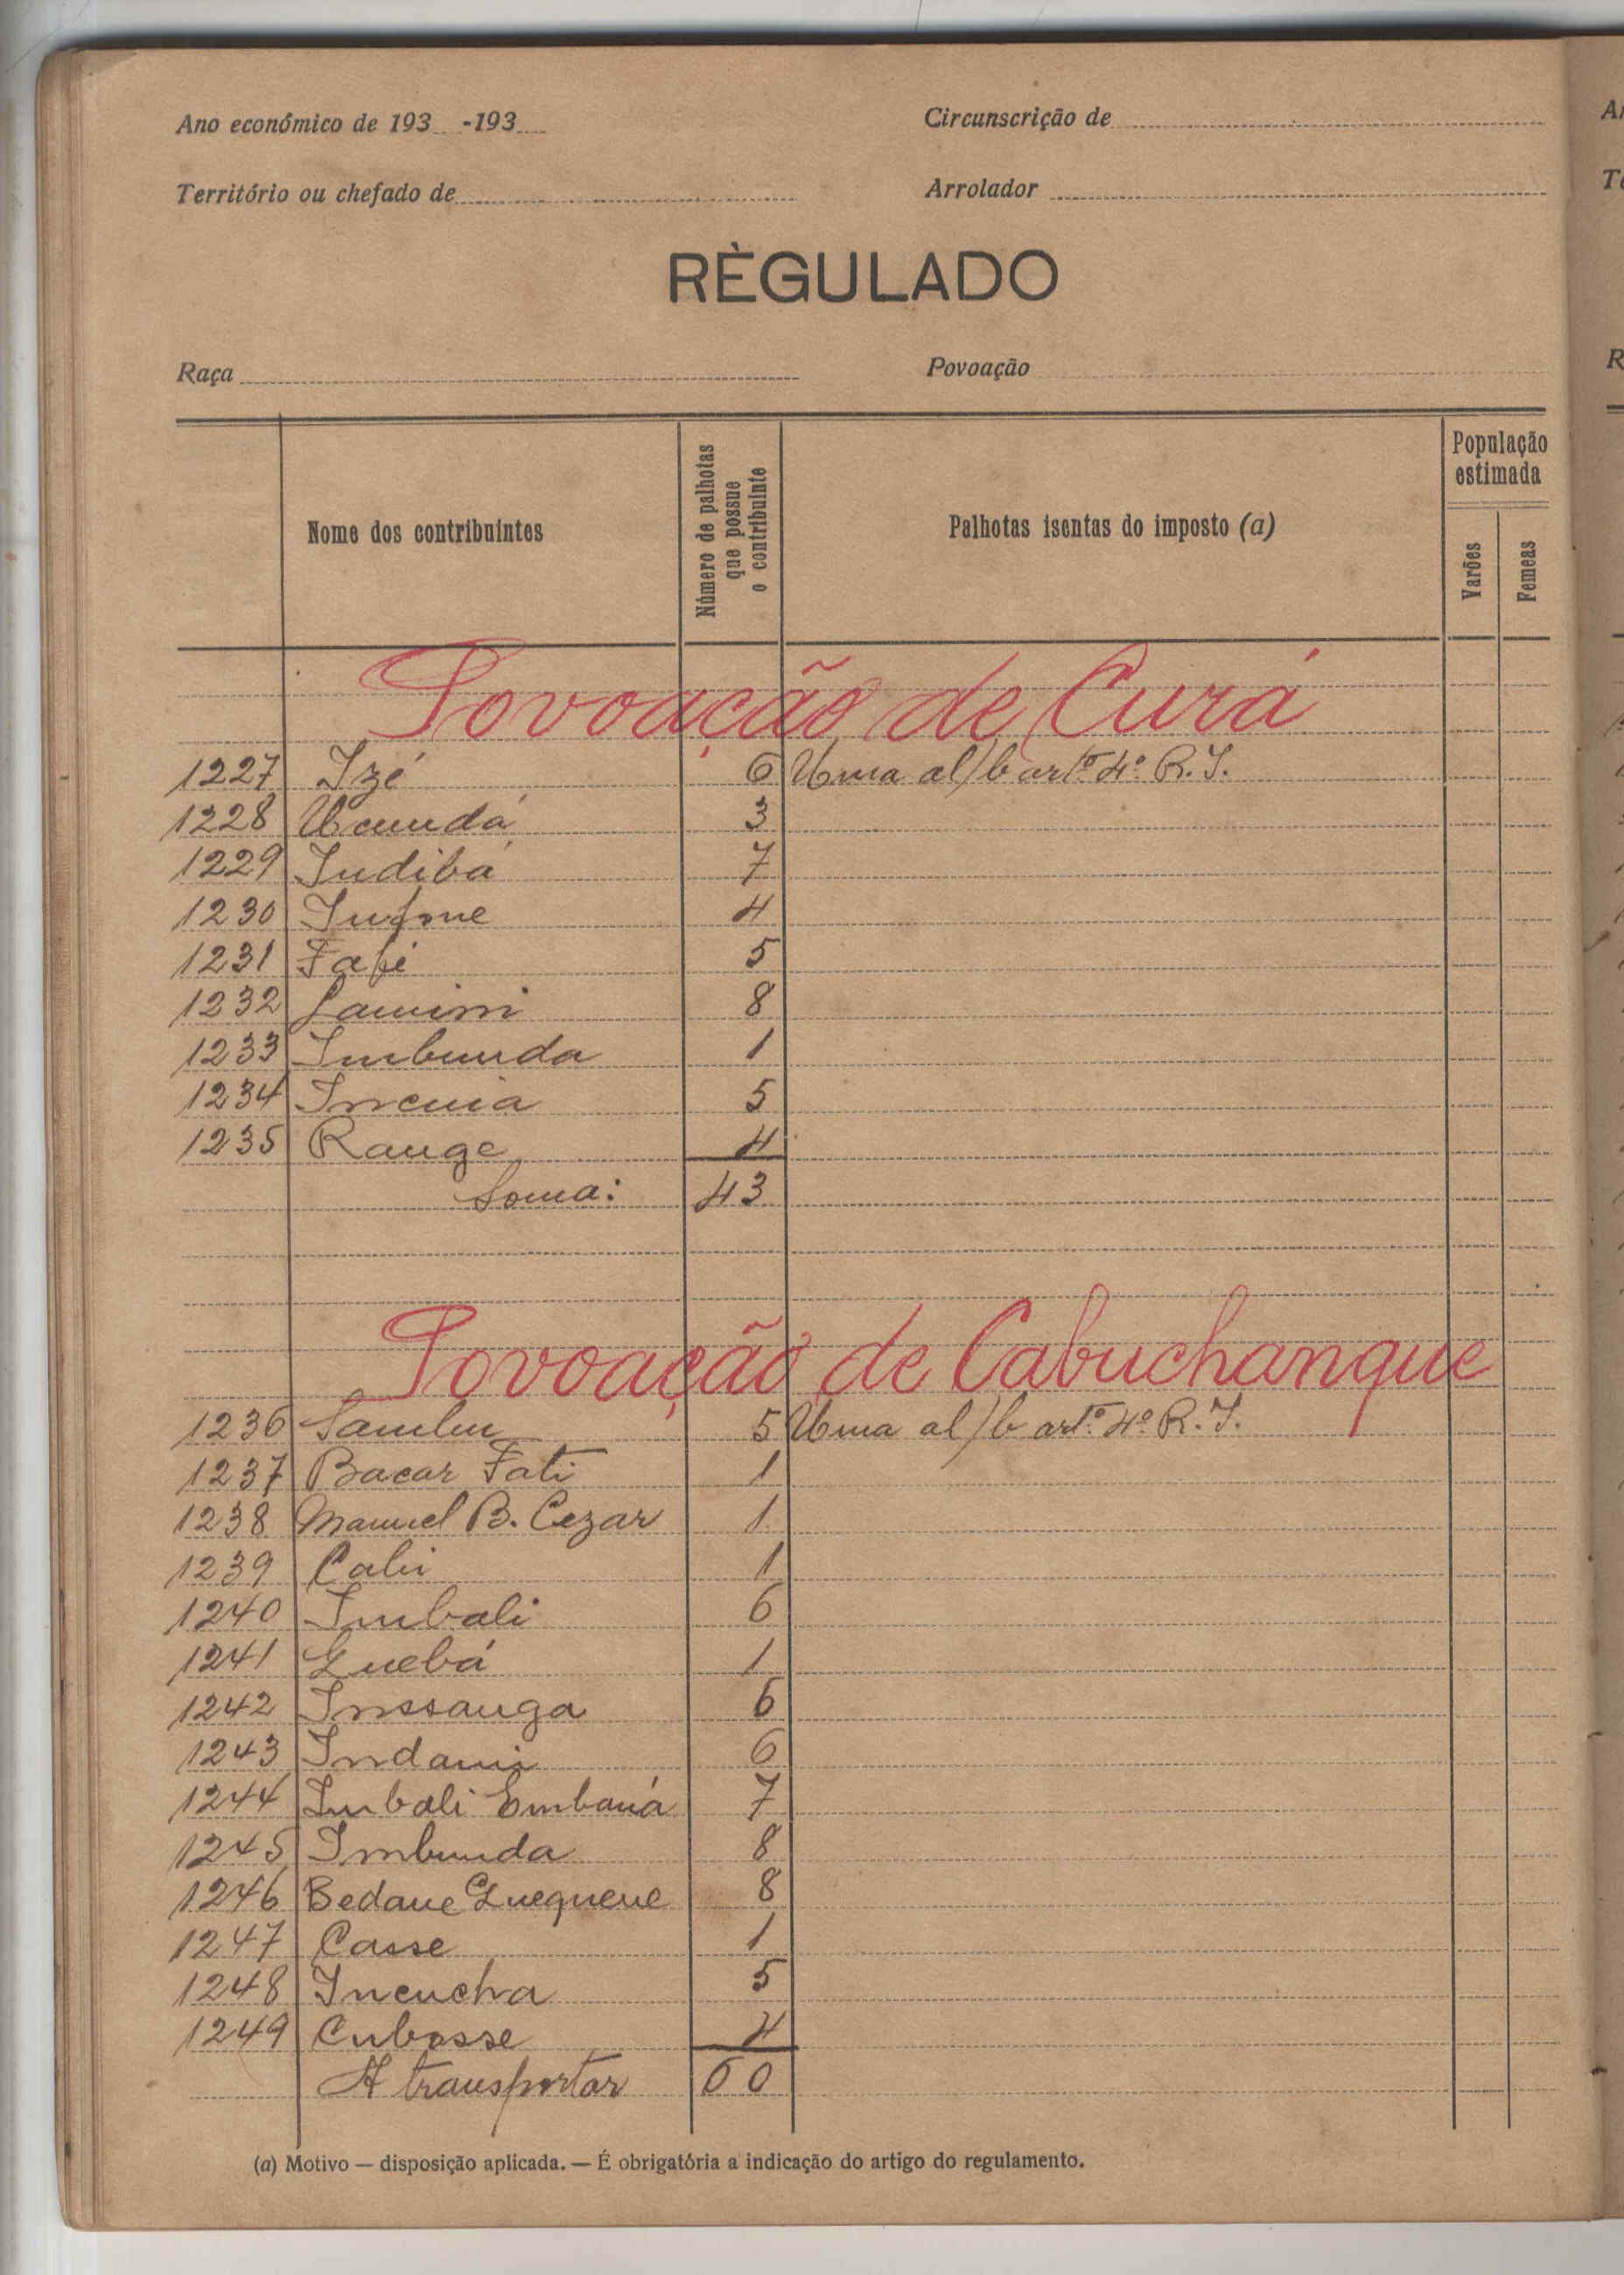 Ano económico de 193 -193
Circunscrição de
Território ou chefado de
Arrolador
RÈGULADO
Raça
Povoação
Nome dos contribuintes
Número de palhotas que possue o contribuinte
Palhotas isentas do imposto (a)
População estimada
Varões
Femeas
Povoação de Curá
1227 Izé 6 Uma al/b artº 4º R. I.
1228 3
1229 Indibá 7
1230 4
1231 Fafé 5
1232 Lamini 8
1233 Imbunda 1
1234 5
1235 Range 4
Soma: 43
Povoação de Cabuchanque
1236 Sambu 5 Uma al/b artº 4º R. I.
1237 Bacar Fati 1
1238 Manuel B. Cezar 1
1239 Cabi 1
1240 Imbali 6
1241 Guebá 1
1242 Inssanga 6
1243 Indami 6
1244 Imbali Embaná 7
1245 Imbunda 8
1246 Bedane Guequene 8
1247 Casse 1
1248 Incucha 5
1249 Cubosse 4
A transportar 60
(a) Motivo — disposição aplicada. — É obrigatória a indicação do artigo do regulamento.